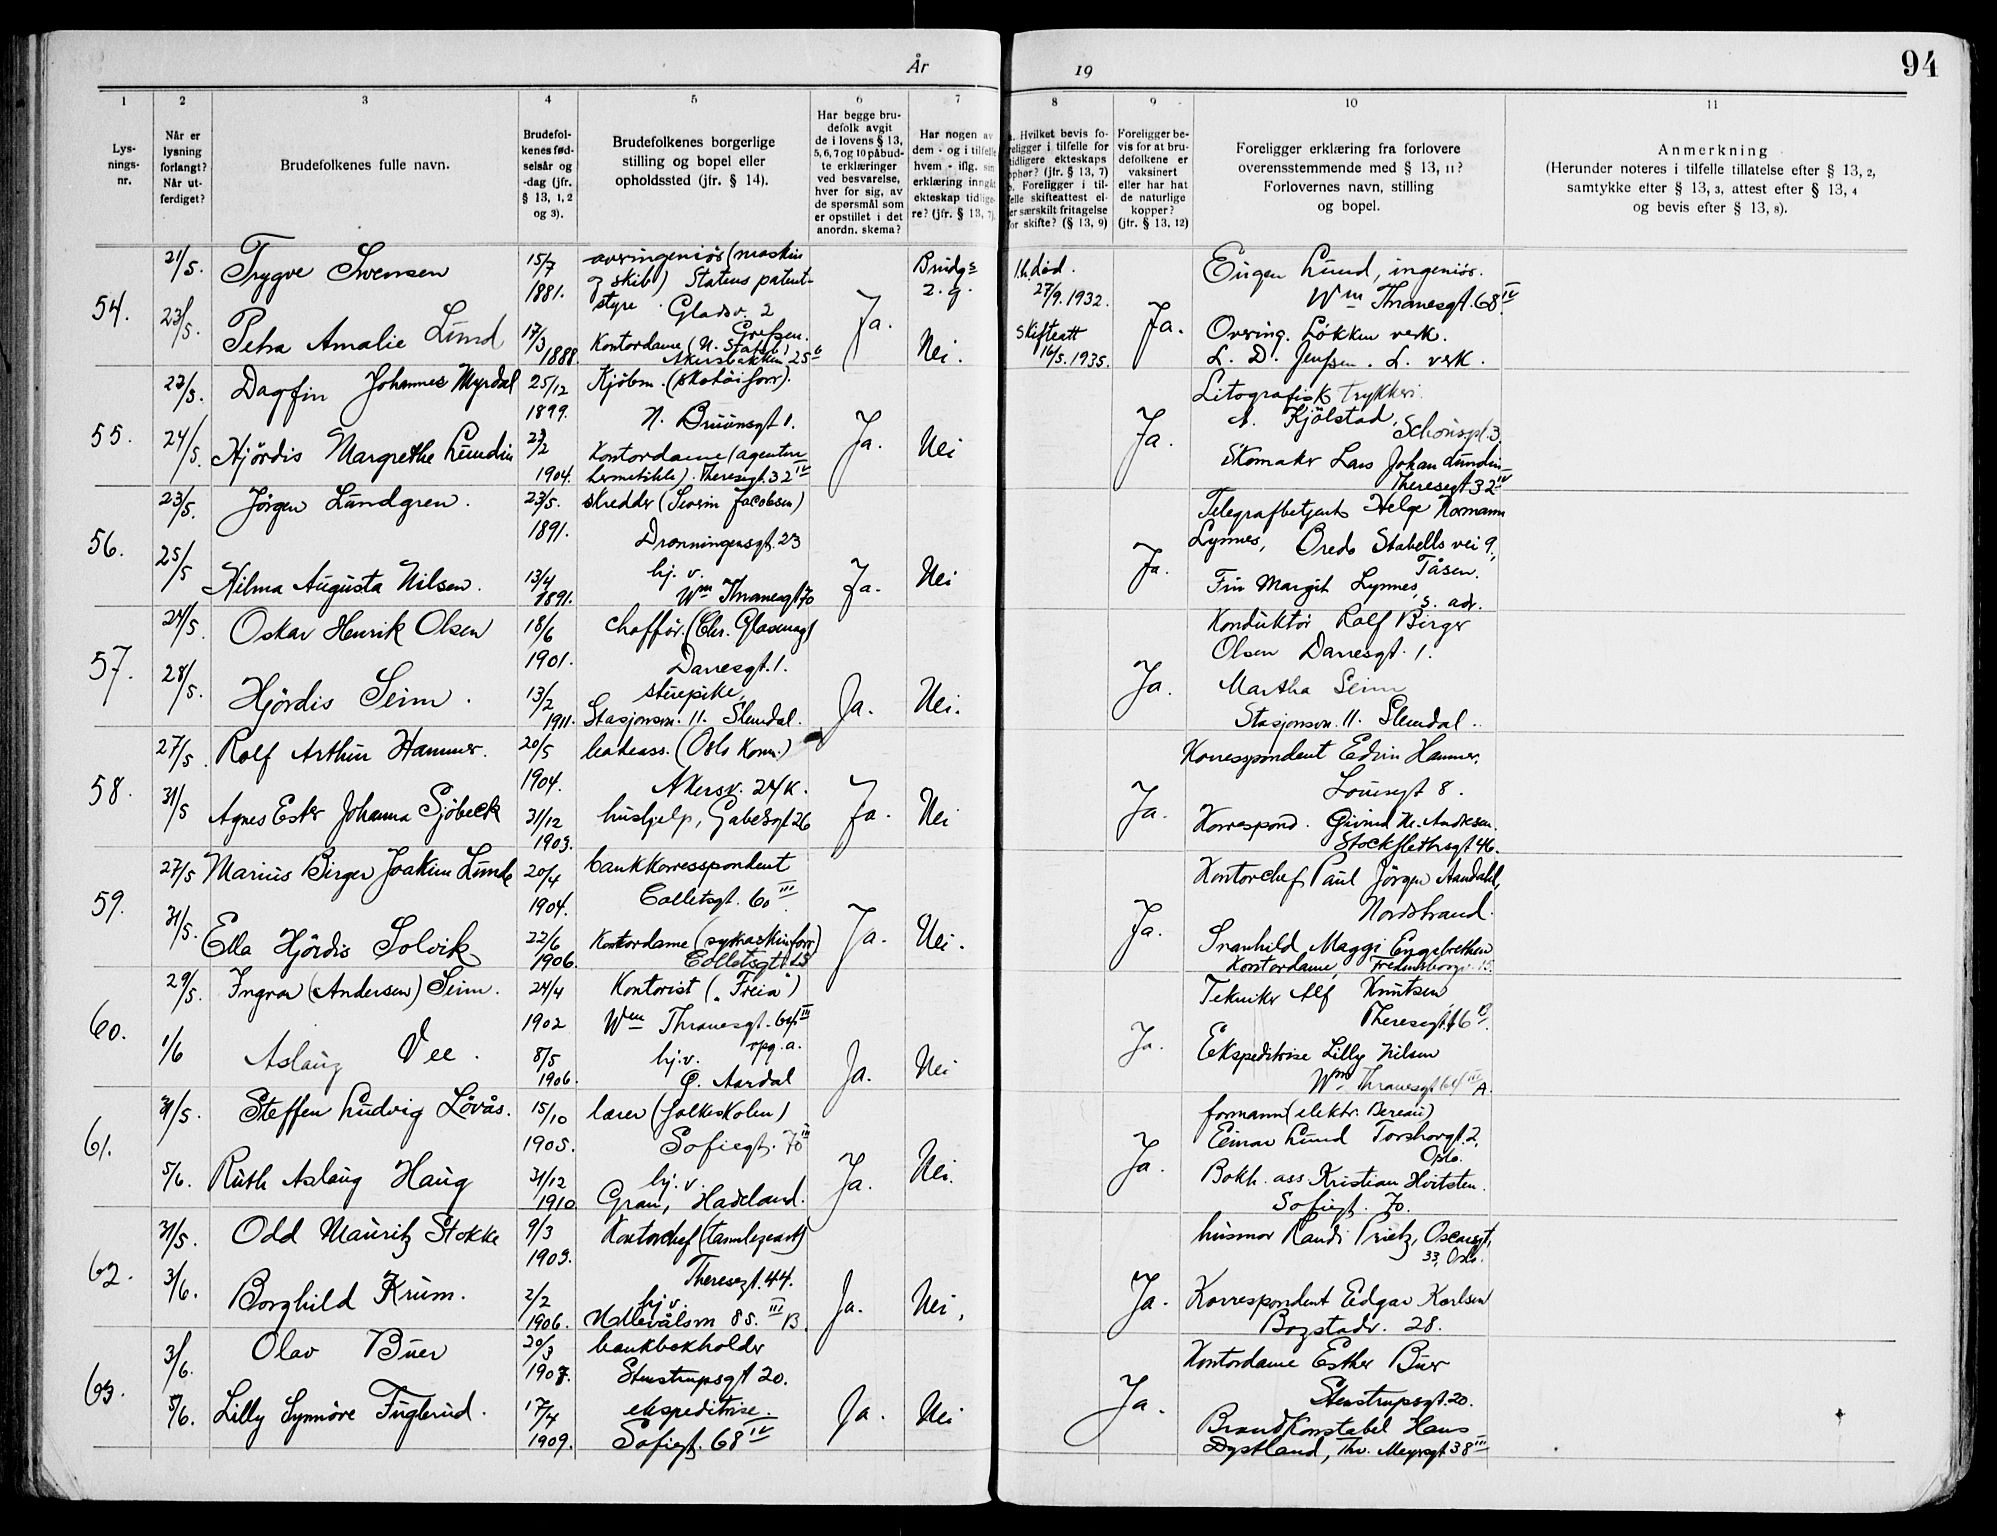 År 19
94
1 2 3 4 5 6 7 8 9 10 11
Lys-
nings-
nr.
Når er
lysning
forlangt?
Når ut-
ferdiget?
Brudefolkenes fulle navn.
Brudefol-
kenes fød-
selsår og
-dag (jfr.
§ 13, 1, 2
og 3).
Brudefolkenes borgerlige
stilling og bopel eller
opholdssted (jfr. § 14).
Har begge bru-
defolk avgit
de i lovens § 13,
5, 6, 7 og 10 påbud-
te erklæringer
ved besvarelse,
hver for sig, av
de spørsmål som
er opstillet i det
anordn. skema?
Har nogen av
dem - og i tilfelle
hvem - iflg. sin
erklæring inngåt
ekteskap tidlige-
re? (jfr. § 13, 7).
a. Hvilket bevis fo-
religger i tilfelle for
tidligere ekteskaps
ophør? (jfr. § 13, 7)
b. Foreligger i til-
felle skifteattest el-
ler særskilt fritagelse
for skifte? (§ 13, 9)
Foreligger be-
vis for at bru-
defolkene er
vaksinert
eller har hat
de naturlige
kopper?
(jfr. § 13, 12)
Foreligger erklæring fra forlovere
overensstemmende med § 13, 11?
Forlovernes navn, stilling
og bopel.
Anmerkning
(Herunder noteres i tilfelle tillatelse efter § 13, 2,
samtykke efter § 13, 3, attest efter § 13, 4
og bevis efter § 13, 8).
54.
21/5.
23/5.
Trygve Svensen
Petra Amalie Lund
15/7
1881.
17/3
1888.
overingeniør (maskin
og skib) Statens patent-
styre. Gladsv. 2
Grefsen.
Kontordame (N. Statsb.)
Akersbakken 25
Ja.
Brudg.
2. g.
Nei.
1. h. død.
27/9. 1932.
skifteatt
16/5. 1935.
Ja.
Eugen Lund, ingeniør.
Wm Thranesgt. 68 IV
Overing. Løkken verk.
L. D. Jenssen. L. verk.
55.
22/5.
24/5.
Dagfin Johannes Myrdal
Hjördis Margrethe Lundin
25/12
1899.
1904.
Kjöbm. (skotöiforr).
N. Bruunsgt 1.
Kontordame (agentur
hermetikk). Theresesgt. 32 IV
Ja.
Nei
Ja.
Litografisk trykkeri
A. Kjölstad, Schouspl. 3.
Skomaker Lars Johan Lundin
Theresesgt 32 IV
56.
23/5.
25/5
Jörgen Lundgren.
Hilma Augusta Nilsen.
23/5.
1891.
13/4
1891.
skredder (Severin Jacobsen)
Dronningensgt. 23
hj. v.
Wm Thranesgt 70
Ja.
Nei
Ja.
Telegrafbetjent Helge Normann
Lynnes, Bredo Stabells vei 9,
Tåsen.
Fru Margit Lynnes,
s. adr.
57.
24/5.
28/5.
Oskar Henrik Olsen
Hjördis Seim.
18/6
1901.
13/2
1911.
chafför. (Chr. Glasmag)
Darresgt. 1.
stuepike,
Stasjonsv. 11. Slemdal.
Ja.
Nei.
Ja.
Konduktör Rolf Birger
Olsen Darresgt. 1.
Martha Seim
Stasjonsv. 11. Slemdal.
58.
27/5.
31/5
Rolf Arthur Hammer.
Agnes Ester Johanna Sjöbeck
20/5
1904.
31/12
1903.
badeass. (Oslo Kom.)
Akersv. 24 K.
hushjelp, Gabelsgt 26
Ja.
Nei
Ja.
Korrespondent Edvin Hammer,
Louisesgt 8.
Korrespond. Eivind M. Andresen.
Stockflethsgt 46.
59.
27/5
31/5.
Marius Birger Joakim Lunde
Ella Hjördis Solvik
20/4
1904.
22/6
1906.
bankkorrespondent
Colletsgt. 60 III.
Kontordame (symaskinforr)
Colletsgt 25
Ja.
Nei.
Ja.
Kontorchef Paul Jörgen Aandahl,
Nordstrand.
Svanhild Maggi Engebrethsen
Kontordame, Fredensborgv. 15.
60.
29/5.
1/6
Ingvar (Andersen) Seim.
Aslaug Vee.
24/4
1902
8/5
1906.
Kontorist („Freia")
Wm Thranesgt. 64 III
opg. a.
hj. v.
Ö. Aardal
Ja.
Nei
Ja.
Tekniker Alf Knutsen
Theresesgt. 16 B.
Ekspeditrise Lilly Nilsen
Wm Thranesgt 64 III A.
61.
31/5.
5/6.
Steffen Ludvig Lövås.
Ruth Aslaug Haug
15/10
1905.
31/12
1910
lærer (folkeskolen)
Sofiegt. 70 III
hj. v.
Gran, Hadeland.
Ja.
Nei.
Ja.
formann (elektr. Bereau)
Einar Lund Torshovgt. 2,
Oslo.
Bokh. ass Kristian Hvitsten.
Sofiegt. 70.
62.
31/5.
3/6.
Odd Mauritz Stokke
Borghild Krum.
9/3
1903.
2/2
1906.
Kontorchef (tannlegeart)
Theresesgt. 44.
hj. v.
Ullevålsvn 85. III B.
Ja.
Nei.
Ja.
husmor Randi Prietz, Oscarsgt.
33, Oslo.
Korrespondent Edgar Karlsen
Bogstadv. 28.
63.
3/6.
5/6.
Olav Buer
Lilly Synnöve Fuglerud.
20/3
1907.
17/4
1909.
bankbokholder
Stenstrupsgt 20.
ekspeditrise.
Sofiegt. 68 IV
Ja.
Nei
Ja.
Kontordame Esther Buer
Stenstrupsgt. 20.
Brandkonstabel Hans
Dystland, Thv. Meyersgt. 38 III